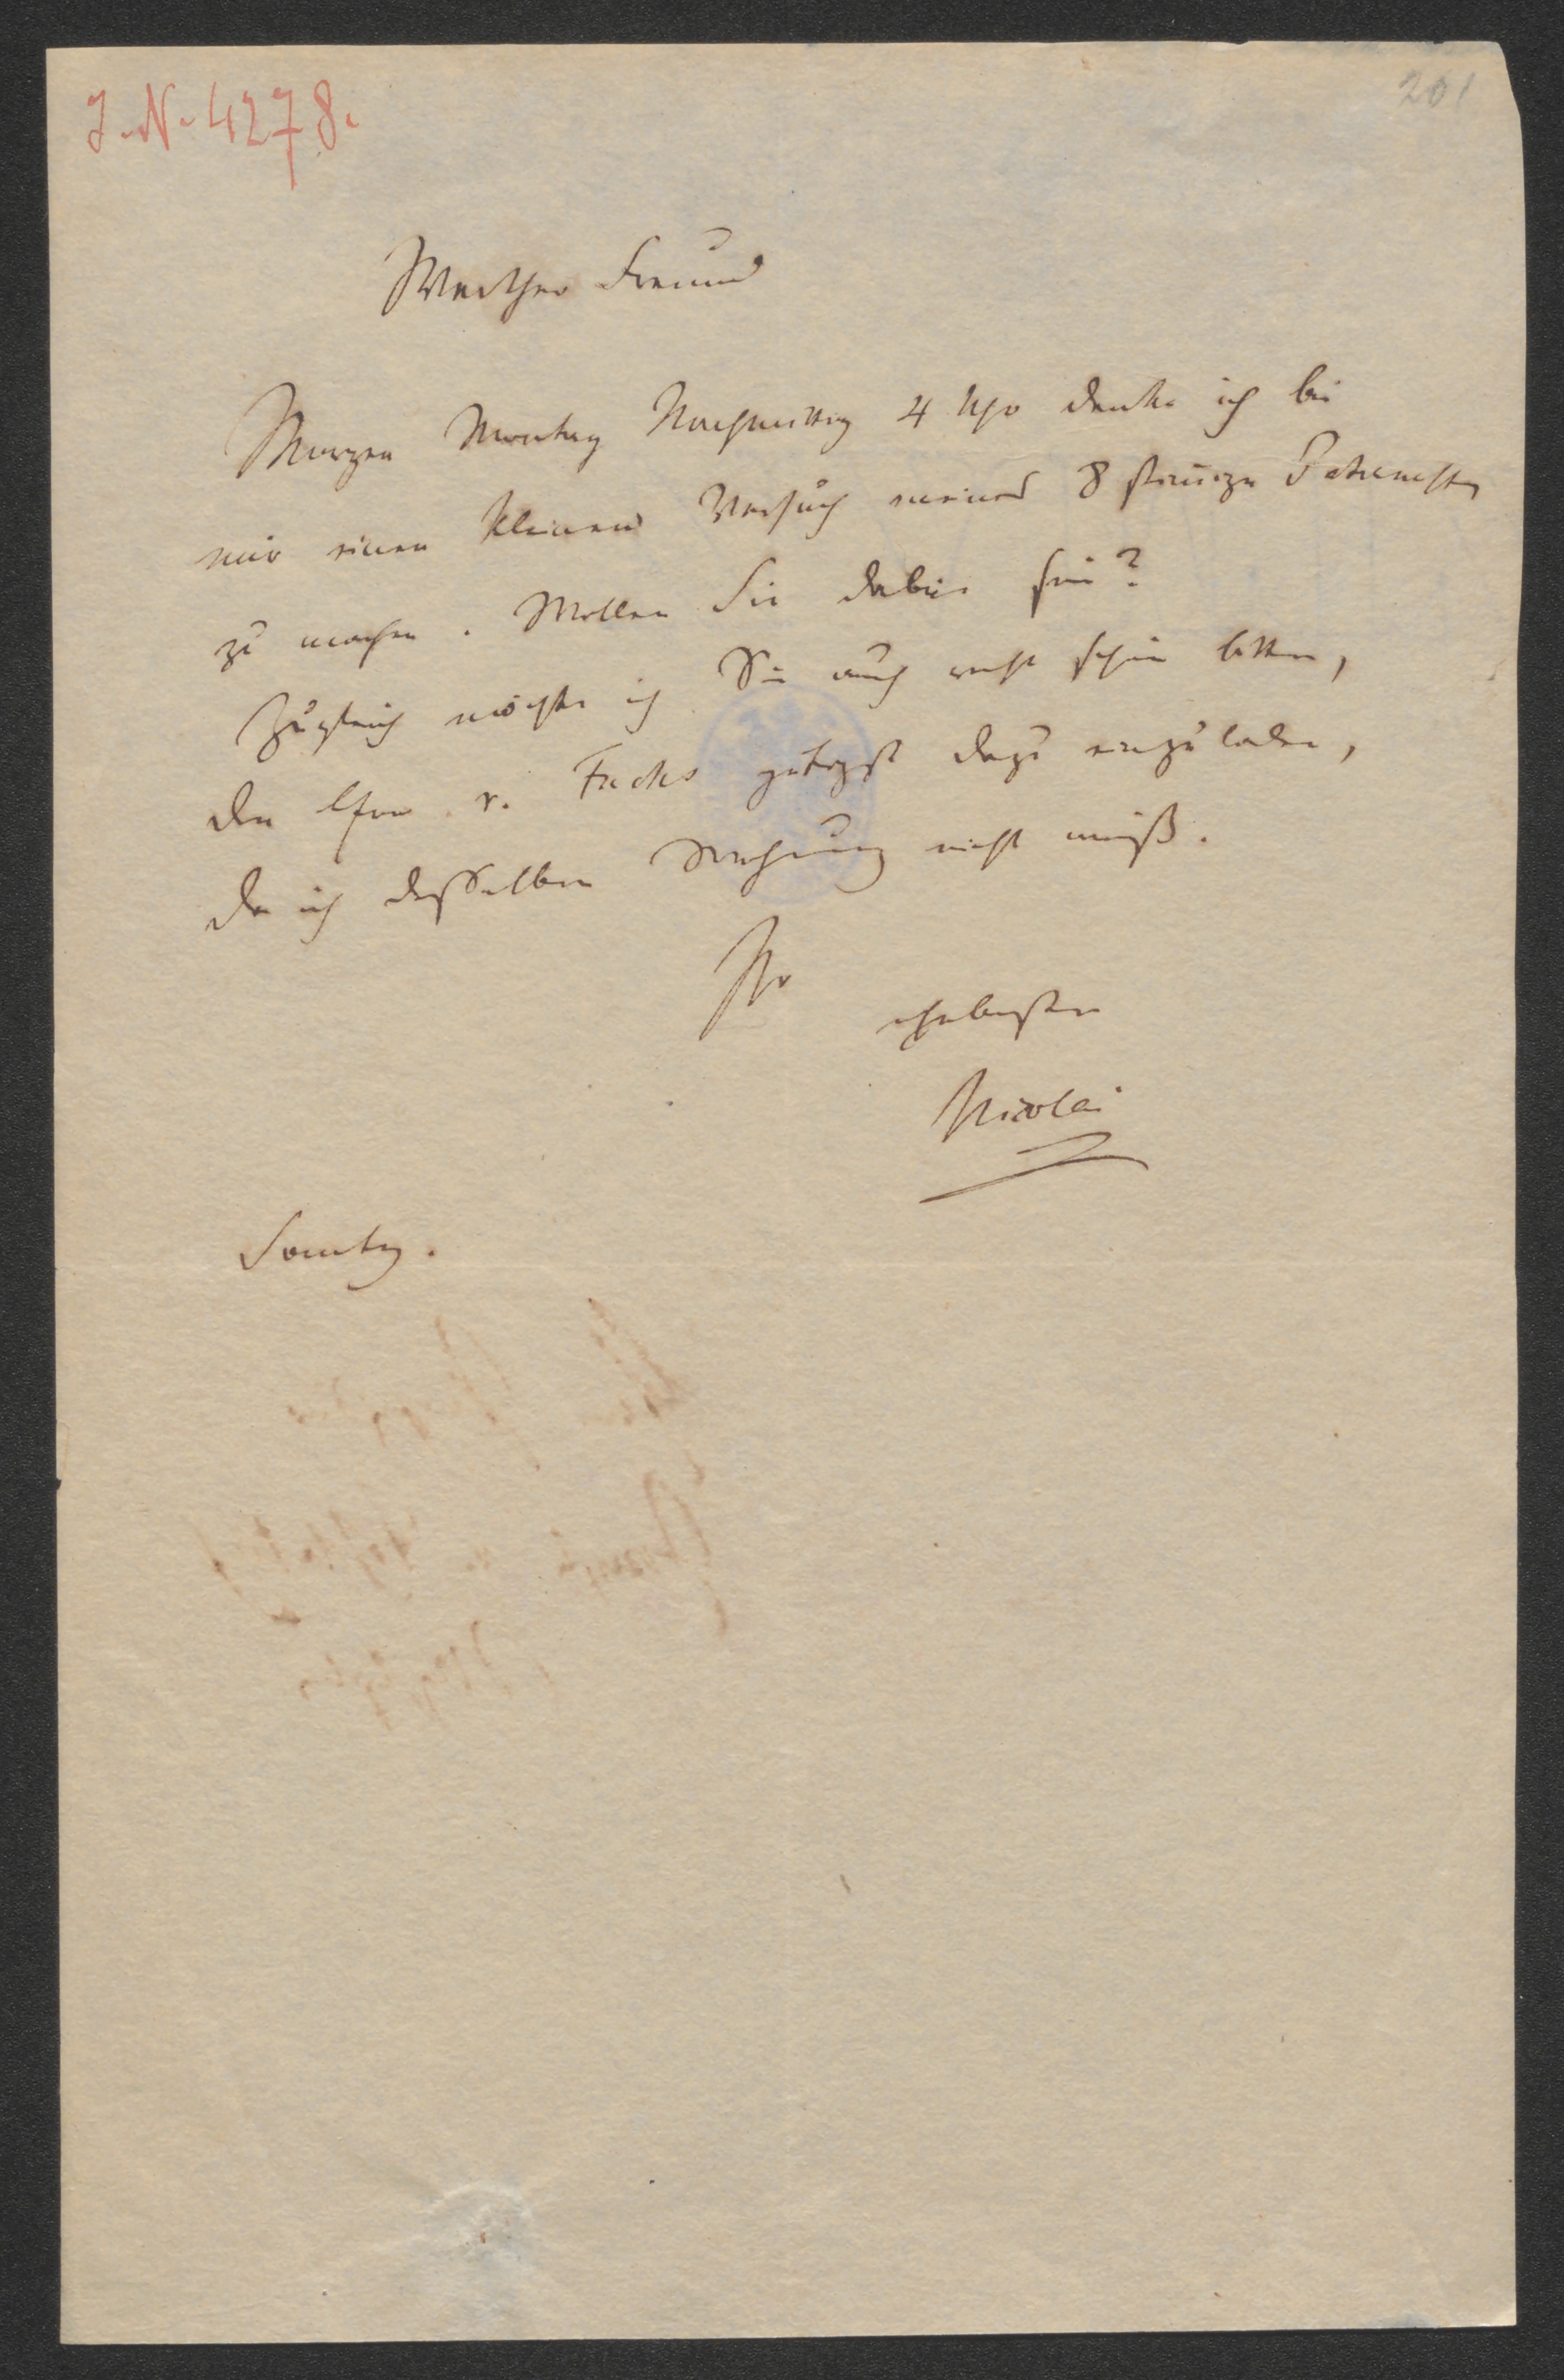 J. N. 4278.
201
Werther Freund
Morgen Montag Nachmittag 4 Uhr denke ich bei
mir einen kleinen Versuch meines 8 stimigen
zu machen. Wollen Sie dabei sein?
Zugleich möchte ich Sie auch recht schön bitten,
den Hrn v. Fuchs gütigst dazu einzuladen,
da ich desselben Wohnung nicht weiß.
Ihr
ergebenster
Nicolai
Sonntag.